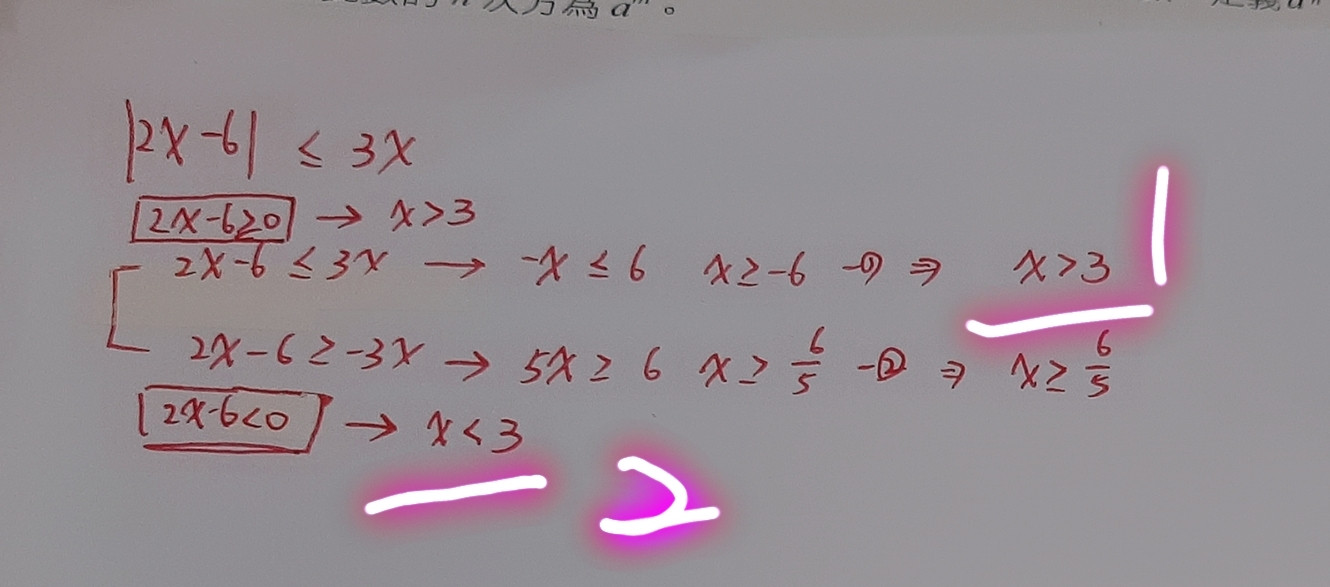 次方為 aⁿ。
|2x-6| ≤ 3x
2x-6≥0 → x>3
2x-6 ≤ 3x → -x ≤ 6 x ≥ -6 -① ⇒ x > 3 1
2x-6 ≥ -3x → 5x ≥ 6 x ≥ 6/5 -② ⇒ x ≥ 6/5
2x-6<0 → x < 3
2